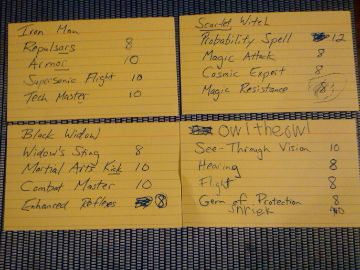 Iron Man
Repulsors 8
Armor 10
Supersonic Flight 10
Tech Master 10
Scarlet Witch
Probability Spell 12
Magic Attack 8
Cosmic Expert 8
Magic Resistance 8
Black Widow
Widow's Sting 8
Martial Arts Kick 10
Combat Master 10
Enhanced Reflexes 8
owltheowl
See-Through Vision 10
Hearing 8
Flight 8
Gem of Protection 8
Shriek